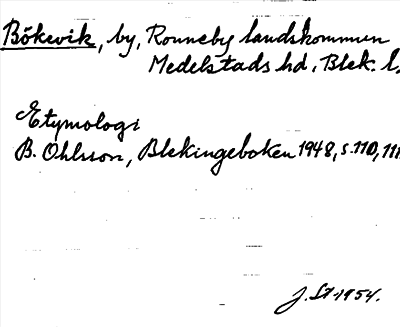 Bökevik, by, Ronneby landskommun
Medelstads hd, Blek. l.
Etymologi
B. Ohlsson, Blekingeboken 1948, s. 110, 111
J. St 1954.